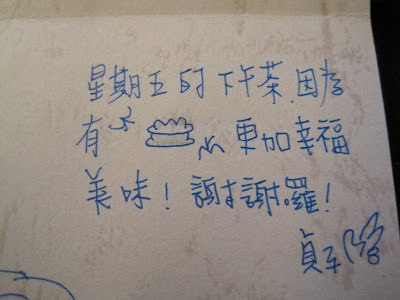 星期五的下午茶.因為
有 更加幸福
美味！謝謝囉！